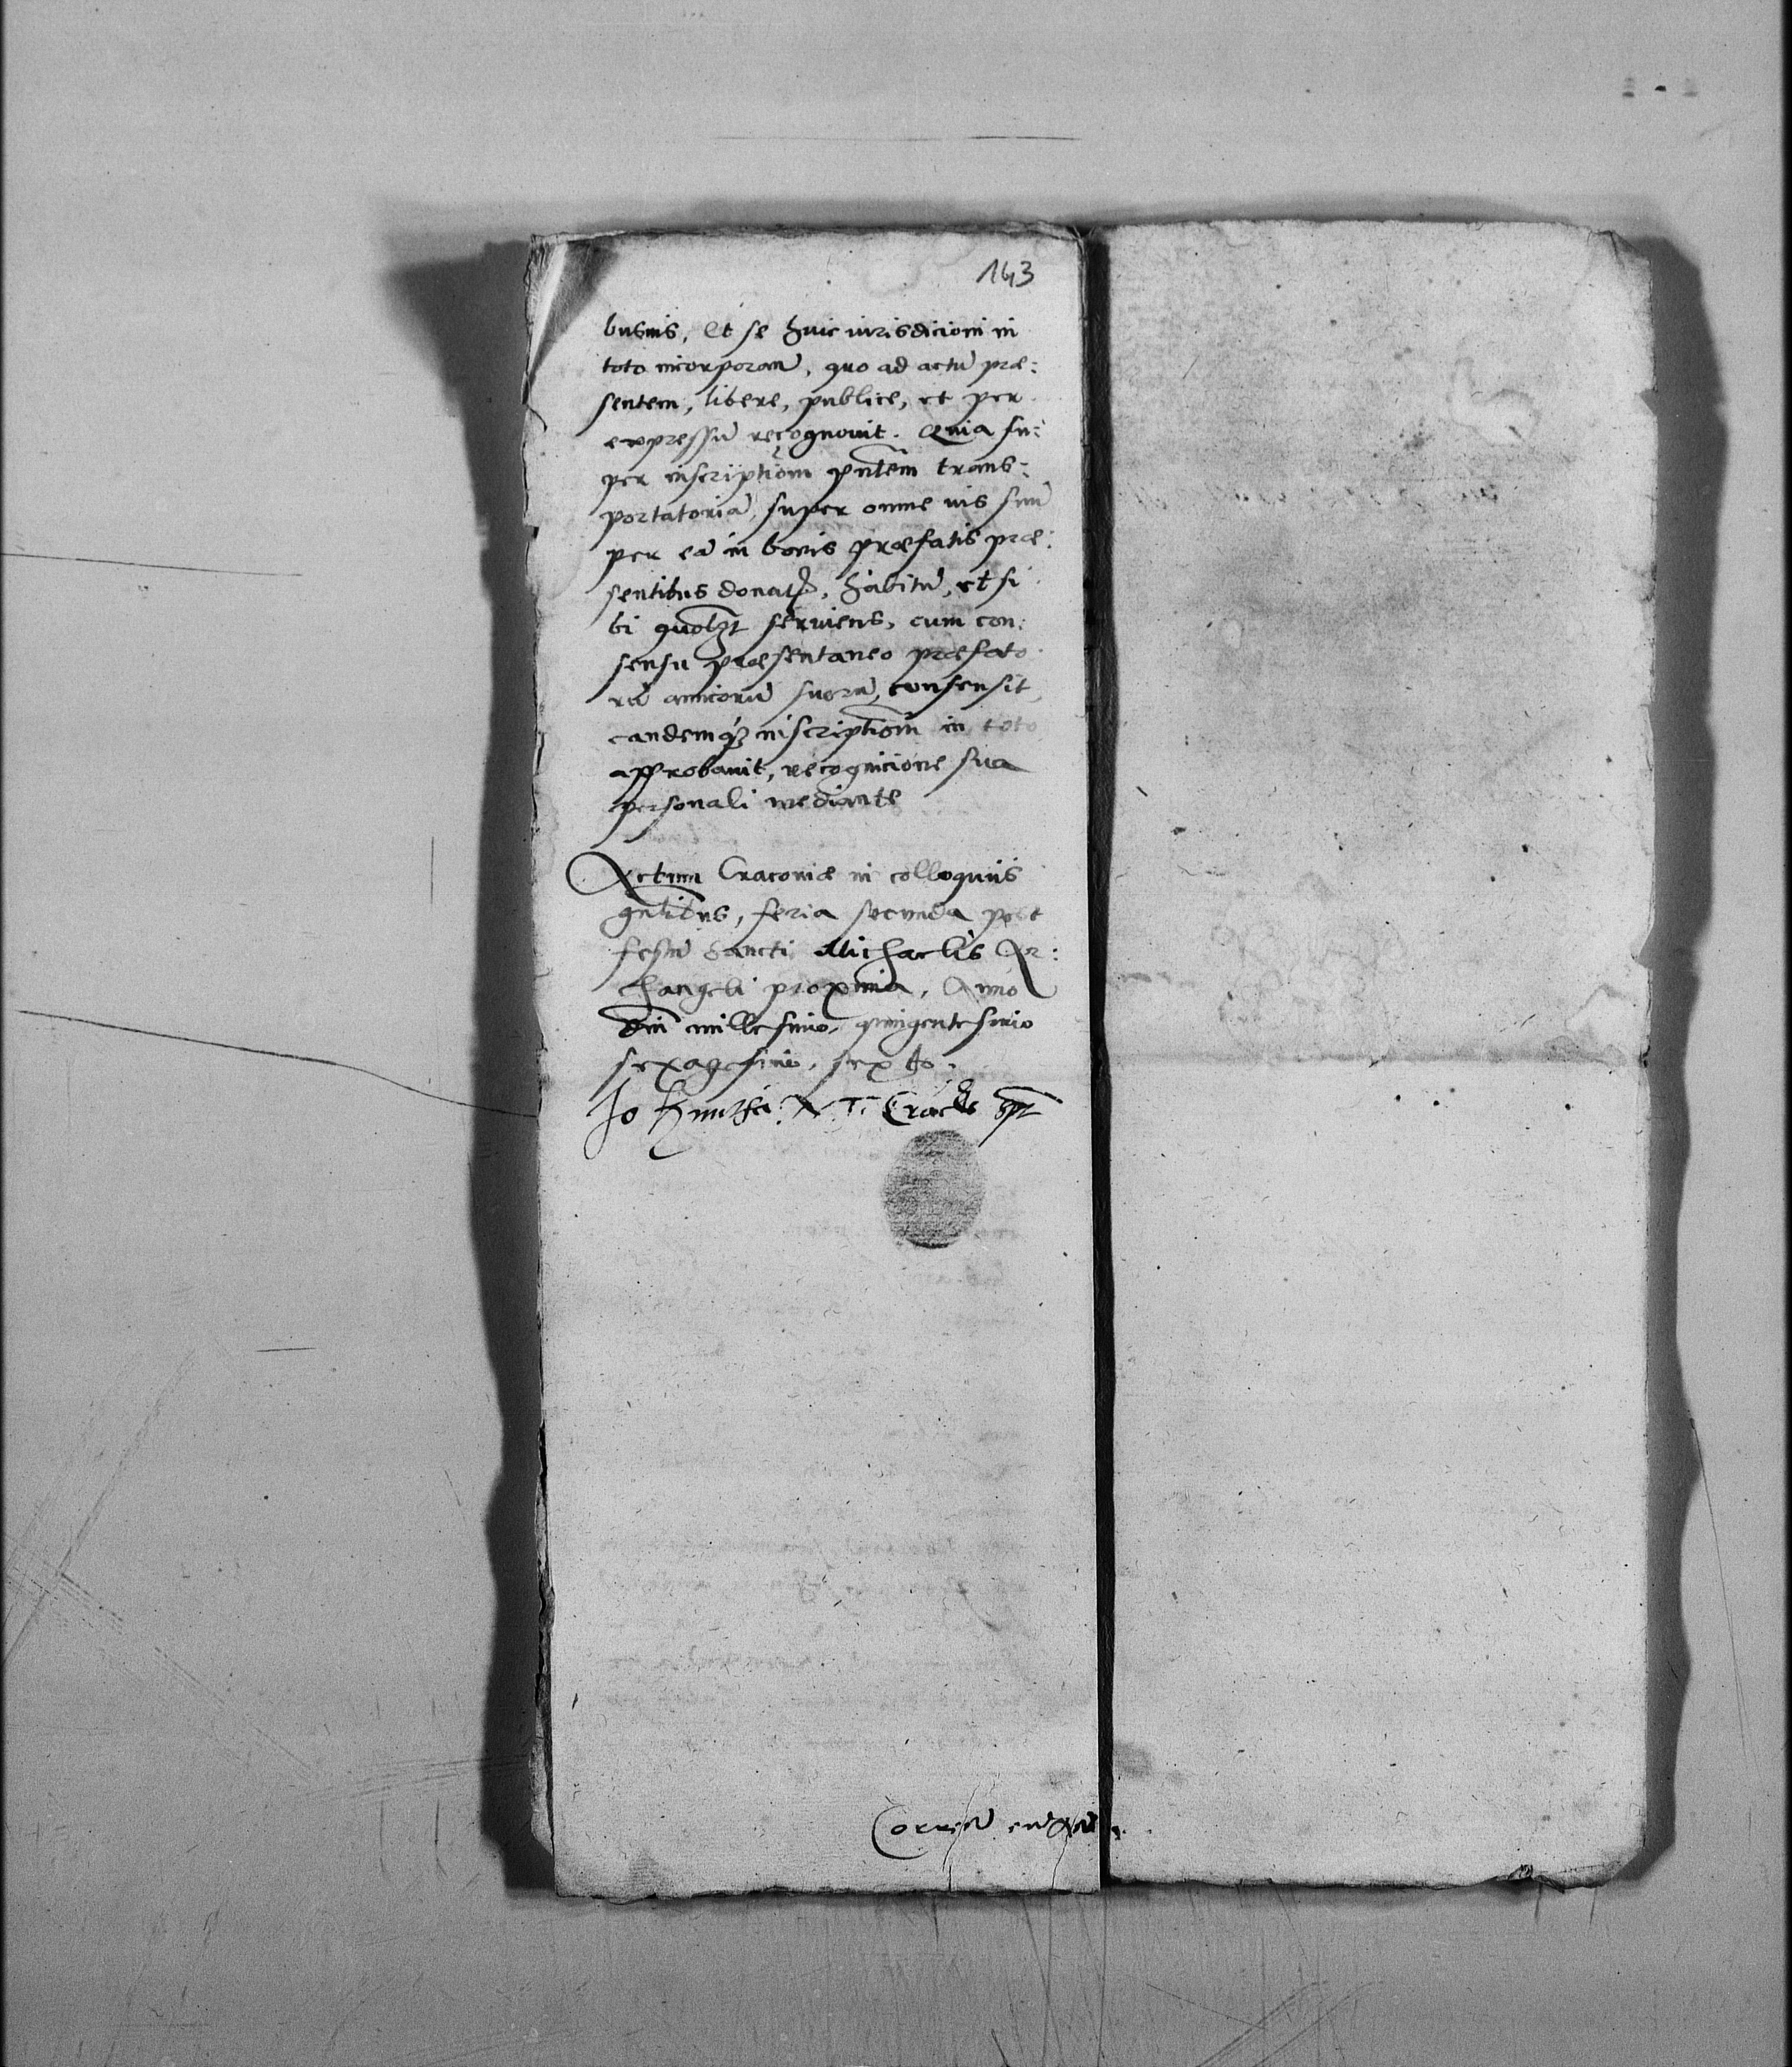 143
busuis, Et se huic iurisdicioni in
toto incorporan̄, quo ad actū præ:
sentem, libere, publice, et per
expressū recognouit. Quia su:
per inscriptiom̄ pn̄tem trans:
portatoriā, super omne ius suū
per eā in bonis præfatis præ:
sentibus donat, habitū, et si
bi quoḽt seruiens, cum con:
sensu præsentaneo præfato
rū amicorū suorū, consensit,
eandemqꝫ inscriptiom̄ in toto
approbauit, recognicione sua
personali mediante
Actum Cracouiæ in colloquiis
gn̄libus, feria secunda post
festū Sancti Michaelis Ar:
changeli proxima, Anno
Dn̄i millesimo, quingentesimo
sexagesimo, sexto.
Jo N. T. Crac spt